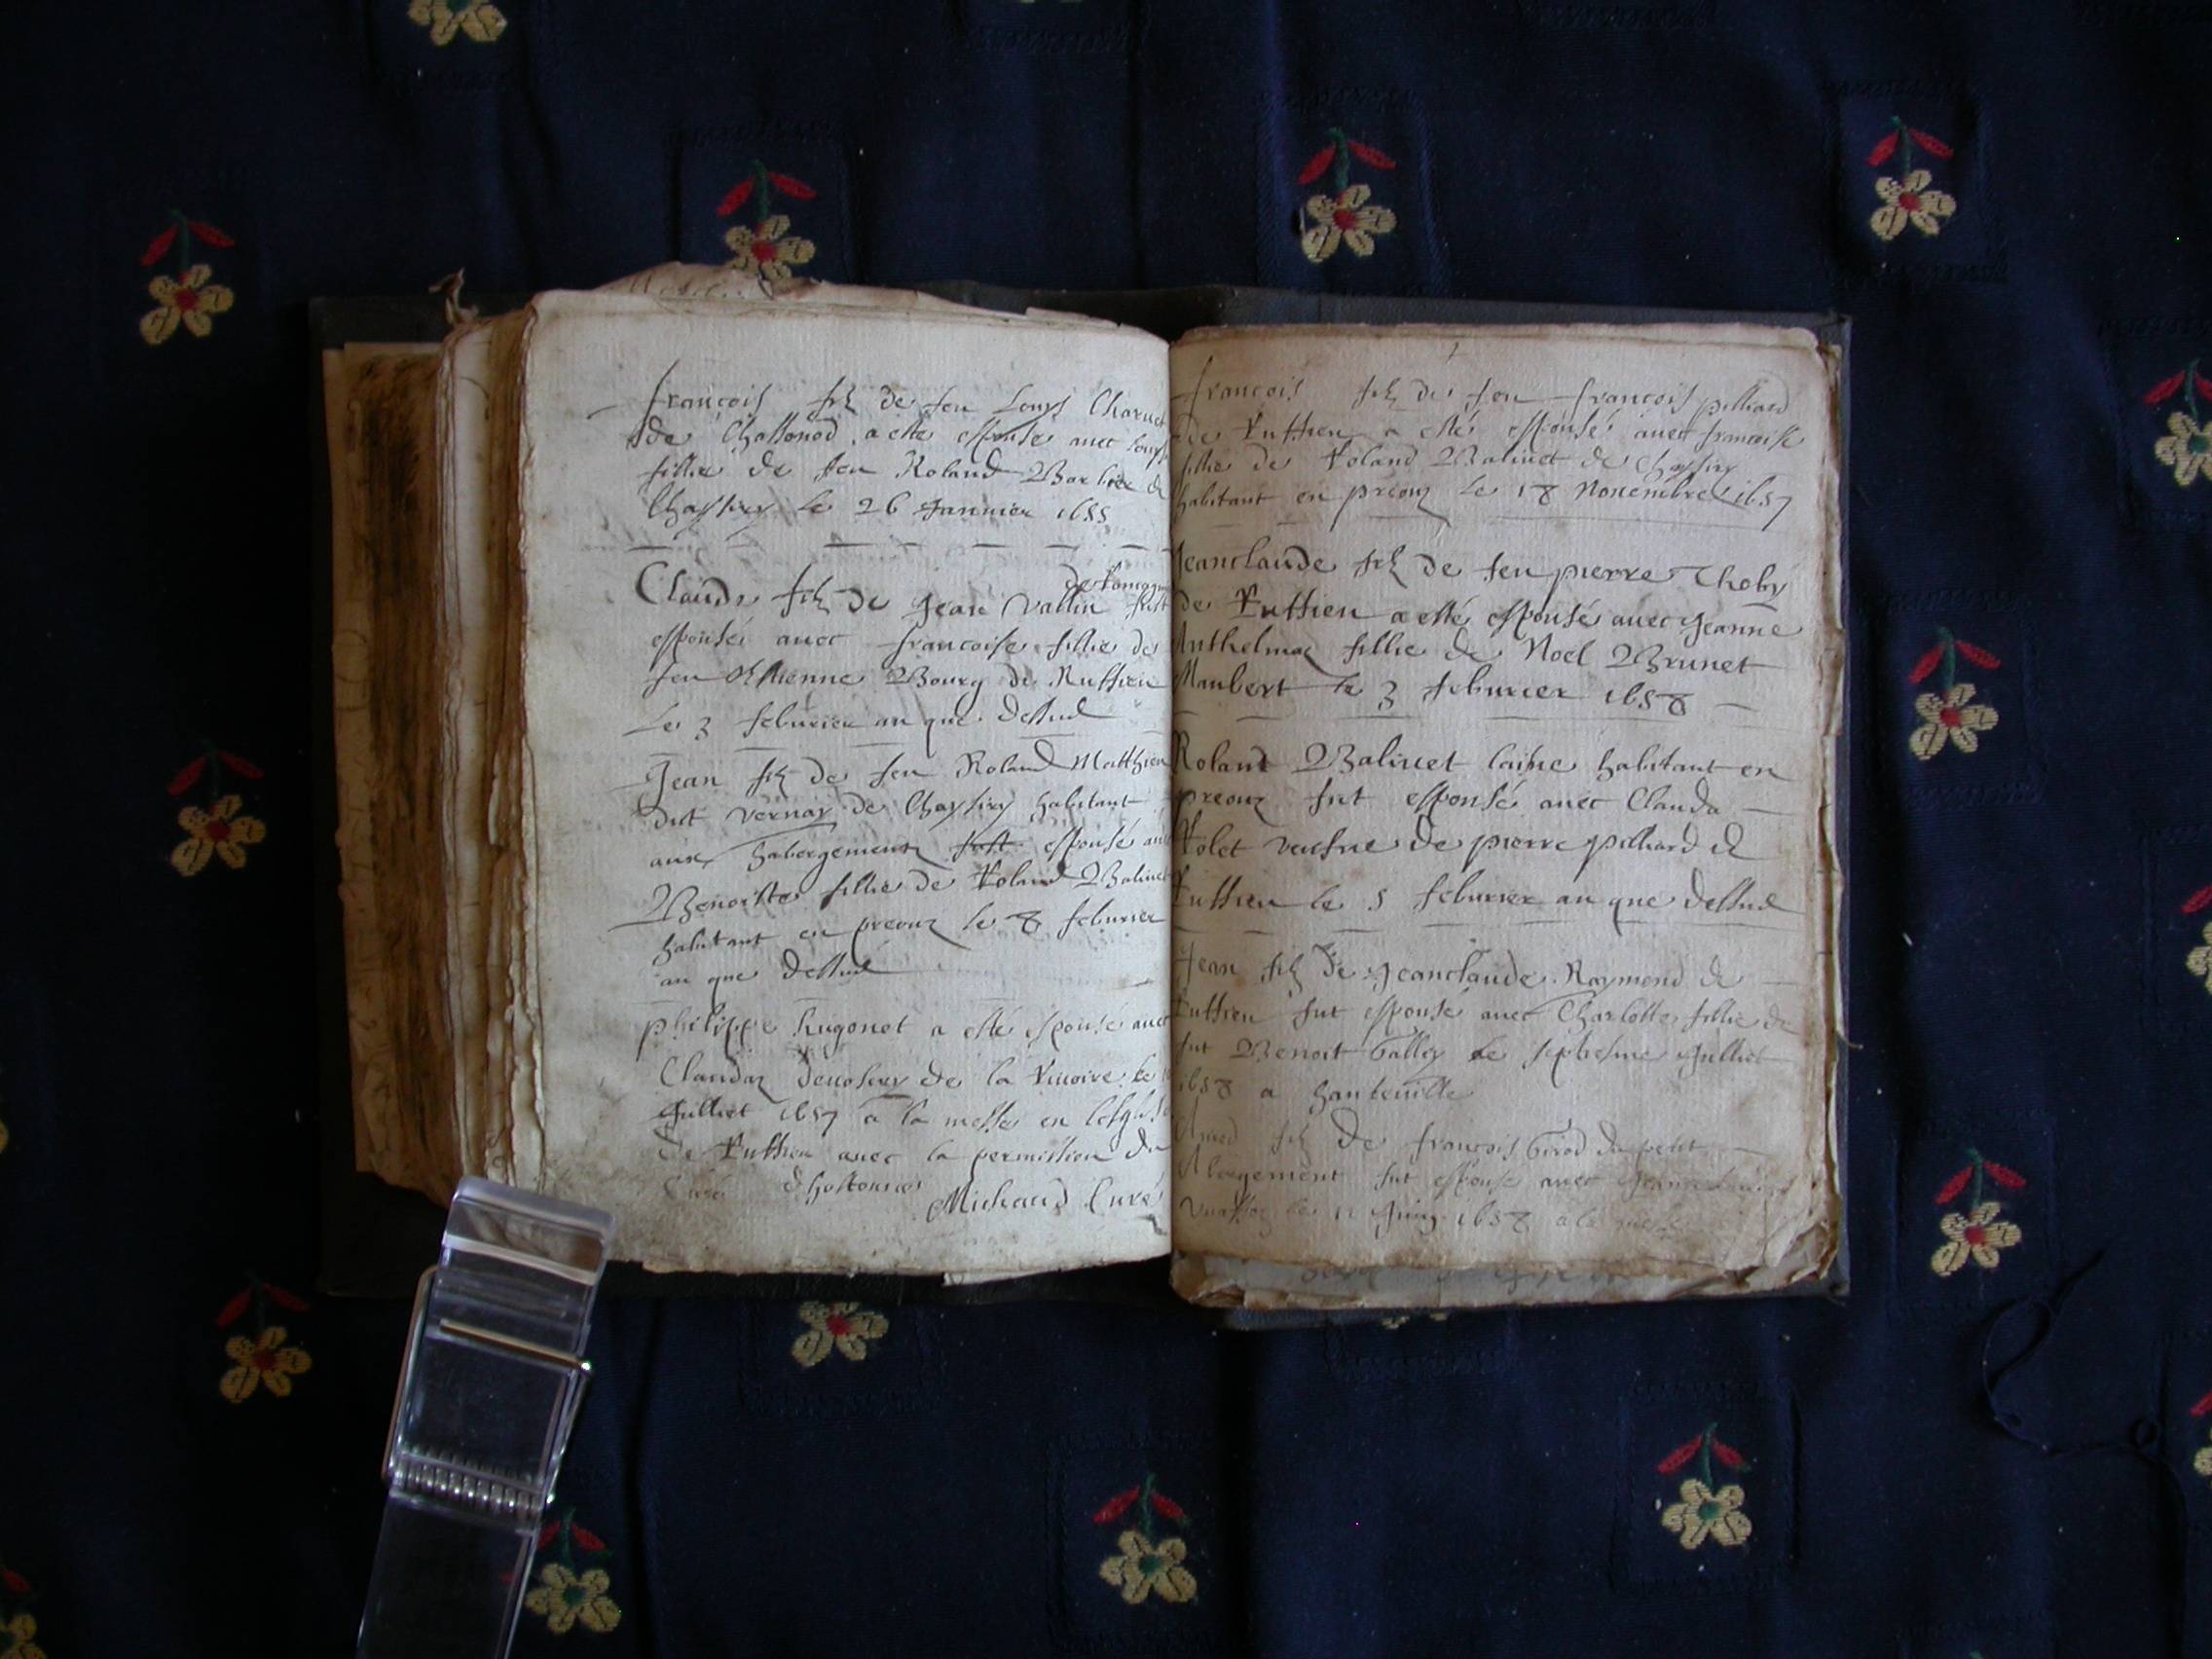 françois filz de feu Louys Charuet
de Chassonod a esté espousé auec Louyse
fillie de feu Roland Barbier de
Chaystry le 26 Januier 1655
de Romagn
Claude filz de Jean Vallin fust
espousé auec françoise fillie de
feu Estienne Bourg de Ruffieu
Le 3 feburier an que dessus
Jean filz de feu Roland Matthieu
dict Vernay de Chaystry habitant
aux habergementz fust espousé auec
Benoiste fillie de Roland Baliuet
habitant en preouz le 8 feburier
an que dessus
philippe hugonet a esté espousé auec
Claudaz de la Riuoire le
Julliet 1657 a la messe en lesglise
de Ruffieu auec la permission du
Curé dhostonne
Michaud Curé
françois filz de feu françois pilliard
de Ruffieu a esté espousé auec francoise
fillie de Roland Baliuet de Chaystry
habitant en preouz le 18 Nouembre 1657
Jeanclaude filz de feu pierre Thoby
de Ruffieu a esté espousé auec Jeanne
Anthelmaz fillie de Noel Brunet
Maubert le 3 feburier 1658
Roland Baliuet laine habitant en
preouz fut espousé auec Clauda
Rolet veufue de pierre pilliard de
Ruffieu le 5 feburier an que dessus
Jean filz de Jeanclaude Raymond de
Ruffieu fut espousé auec Charlotte fillie de
fut Benoit Galley le septiesme Julliet
1658 a hauteuille
Amed filz de françois Girod du petit
Abergement fut espouse auec
le 11 Juing 1658 a la messe